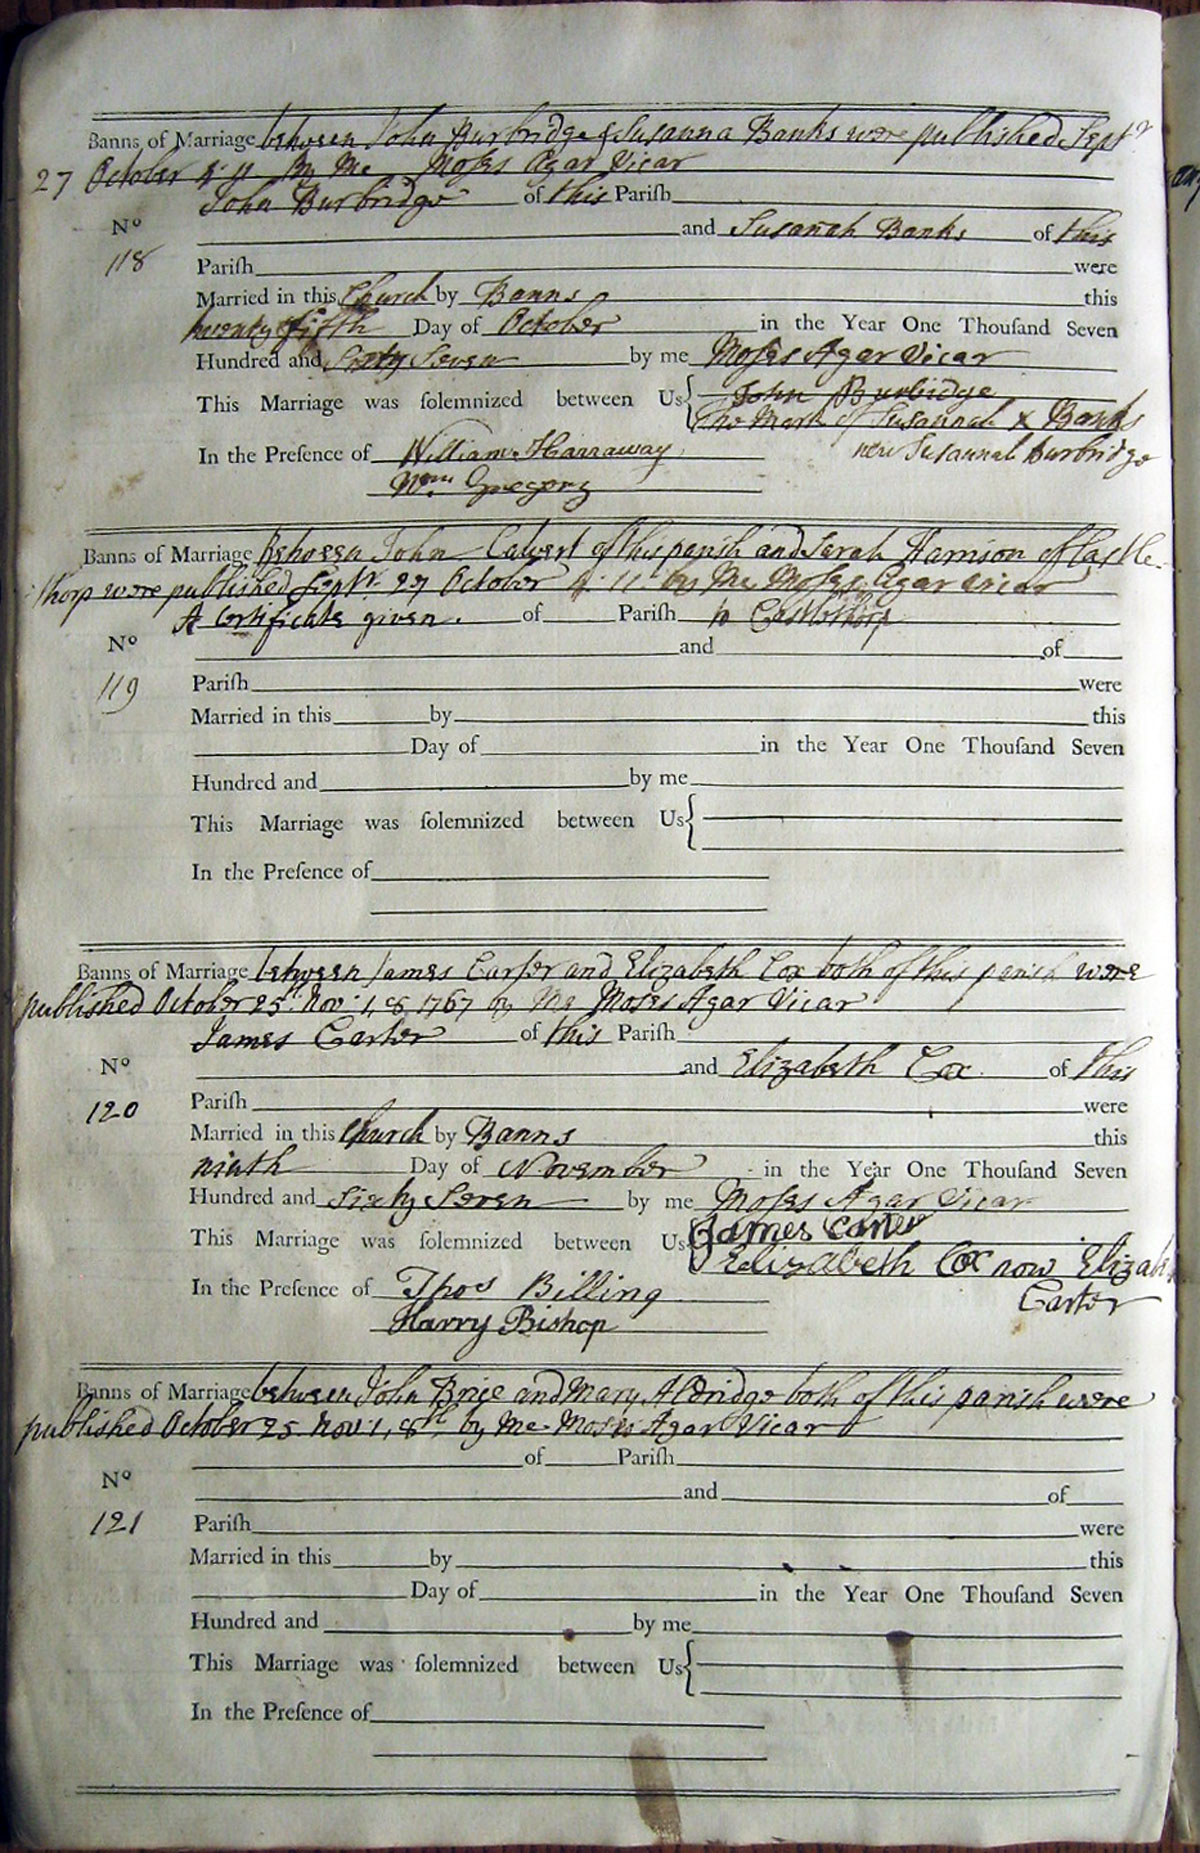 Banns of Marriage between John Burbridge & Susanna Banks were published Septr
27 October 4. 11 By Me Moses Agar Vicar
John Burbridge of this Parish
No and Susanah Banks of this
118 Pariſh were
Married in this Church by Banns this
twenty fifth Day of October in the Year One Thouſand Seven
Hundred and Sixty Seven by me Moses Agar Vicar
This Marriage was ſolemnized between Us John Burbidge
The Mark of Susannah X Banks
In the Preſence of William Harraway now Susannah Burbridge
Wm Gregory
Banns of Marriage Between John Calvert of this parish and Sarah Harrison of Castle-
thorp were published Septr. 27 October 4. 11. by Me Moses Agar Vicar
A Certificate given. of Pariſh to Castlethorp
No and of
119 Pariſh were
Married in this by this
Day of in the Year One Thouſand Seven
Hundred and by me
This Marriage was ſolemnized between Us
In the Preſence of
Banns of Marriage between James Carter and Elizabeth Cox both of this parish were
published October 25th Nov: 1, 8, 1767 by Me Moses Agar Vicar
James Carter of this Pariſh
No and Elizabeth Cox of this
120 Pariſh were
Married in this Church by Banns this
ninth Day of November in the Year One Thouſand Seven
Hundred and Sixty Seven by me Moses Agar Vicar
This Marriage was ſolemnized between Us James Carter
Elizabeth Cox now Elizab
In the Preſence of Thos Billing Carter
Harry Bishop
Banns of Marriage between John Brice and Mary Aldridge both of this parish were
published October 25 Nov: 1, 8th by Me Moses Agar Vicar
of Pariſh
No and of
121 Pariſh were
Married in this by this
Day of in the Year One Thouſand Seven
Hundred and by me
This Marriage was ſolemnized between Us
In the Preſence of